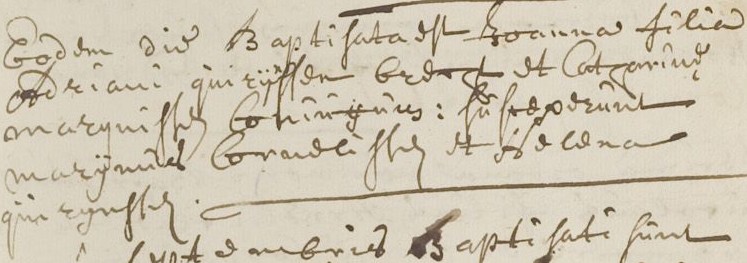 Eodem die Baptisata est Joanna filia
Adriani quirijnssen brecht et Catharinę
marynissen Coninguns: susceperunt
marijnus Cornelissen et Helena
quirynssen.
septembris Baptisati sunt